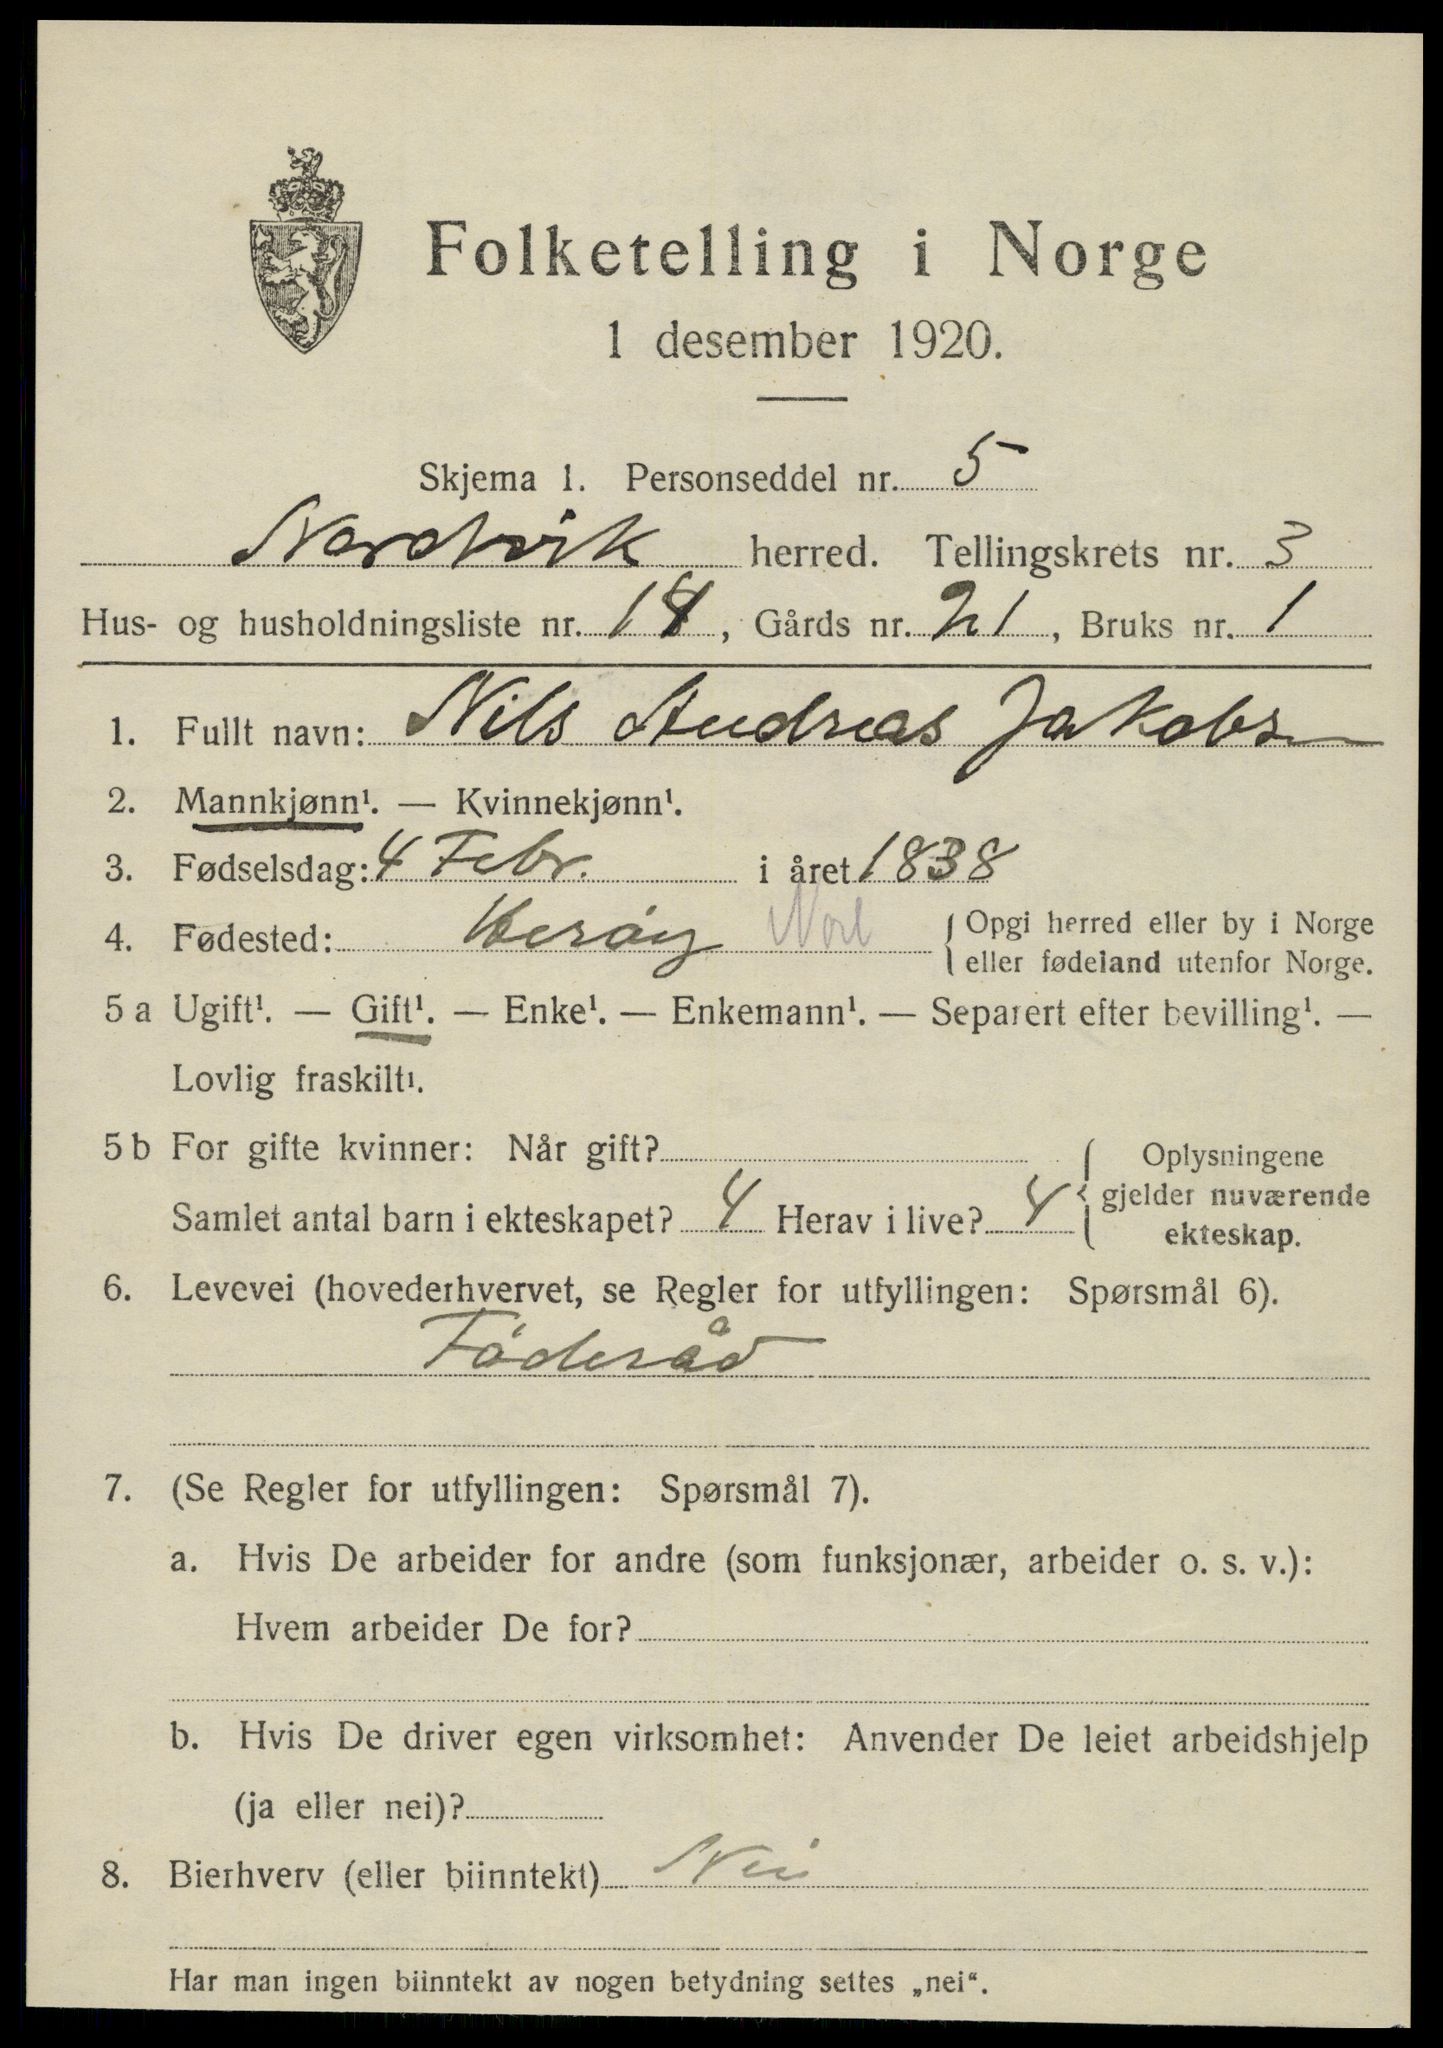 Folketelling i Norge
1 desember 1920.
Skjema 1. Personseddel nr. 5
Nordvik herred. Tellingskrets nr. 3
Hus- og husholdningsliste nr. 14, Gårds nr. 21, Bruks nr. 1
1. Fullt navn: Nils Andreas Jakobsen
2. Mannkjønn¹. — Kvinnekjønn¹.
3. Fødselsdag: 4 Febr. i året 1838
4. Fødested: Herøy Norl { Opgi herred eller by i Norge
eller fødeland utenfor Norge.
5 a Ugift¹. — Gift¹. — Enke¹. — Enkemann¹. — Separert efter bevilling¹. —
Lovlig fraskilt¹.
5 b For gifte kvinner: Når gift? { Oplysningene
Samlet antal barn i ekteskapet? 4 Herav i live? 4 gjelder nuværende
ekteskap.
6. Levevei (hovederhvervet, se Regler for utfyllingen: Spørsmål 6).
Föderåd
7. (Se Regler for utfyllingen: Spørsmål 7).
a. Hvis De arbeider for andre (som funksjonær, arbeider o. s. v.):
Hvem arbeider De for?
b. Hvis De driver egen virksomhet: Anvender De leiet arbeidshjelp
(ja eller nei)?
8. Bierhverv (eller biinntekt) Nei
Har man ingen biinntekt av nogen betydning settes „nei“.